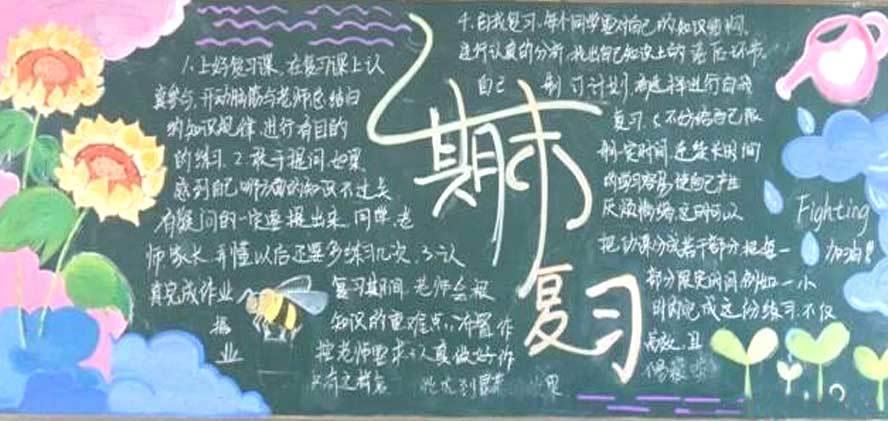 1.上好复习课.在复习课上认
真参与,开动脑筋与老师总结归
的知识规律,进行有目的
的练习.2.敢于提问.如果
感到自己哪方面的知识不过关
有疑问的一定要提出来.同学.老
师家长.弄懂以后还要多练习几次.3.认
真完成作业
复习期间,老师会根
知识的重难点,布置作
业
按老师要求认真做好作
只有这样
期末
复习
4.自我复习.每个同学要对自己的知识
进行认真的分析.找出自己知识上的薄
自己 制订计划,有选择进行自我
复习.5.不妨给自己限
制定时间.连续长时间
的学习容易使自己产生
厌烦情绪.这时可以
把功课分成若干部分.把每一
部分限定时间.例如一小
时内完成这份练习.不仅
高效,且
Fighting
加油!!